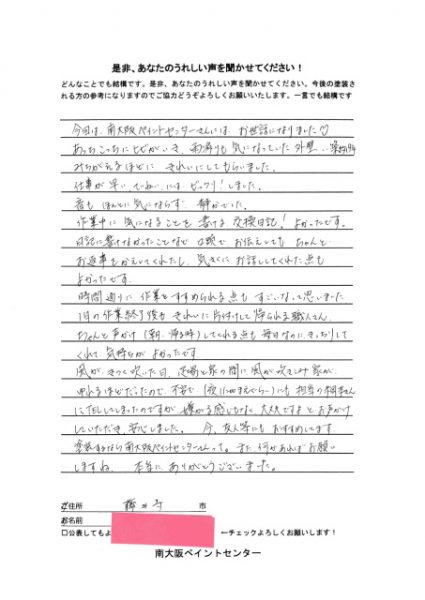 是非、あなたのうれしい声を聞かせてください！
どんなことでも結構です。是非、あなたのうれしい声を聞かせてください。今後の塗装さ
れる方の参考になりますのでご協力どうぞよろしくお願いいたします。一言でも結構です
今回は、南大阪ペイントセンターさんには、お世話になりました♡
あっちこっちにヒビがいき、雨漏りも気になっていた外壁…築
みちがえるほどに きれいにしてもらいました。
仕事が早い、ていねいには、ビックリ！しました。
音も ほんとに気にならず 静かでした。
作業中に 気になることを 書ける 交換日記！よかったです。
日記に書けなかったことなど 口頭で お伝えしても ちゃんと
お返事をかえしてくれたし、気さくに お話ししてくれた点も
よかったです。
時間通りに 作業をすすめられる点も すごいなって思いました
1日の作業終了後も きれいに片付けして帰られる職人さん。
ちゃんと声かけ（朝、帰る時）してくれる点も 毎日なのに、きっちりして
くれて 気持ちが よかったです
風が、きつく吹いた日、足場と家の間に風が吹きこみ 家が、
ゆれるほどだったので、不安で（夜にもかまえらー）にも 担当の
にTELしてしまったのですが 嫌がる感じもなく 大丈夫ですよ とお声がけ
していただき、安心しました。 今、友人等にもおすすめしてます
塗装するなら南大阪ペイントセンターさんって。また 何かあればお願い
しますね。 本当に ありがとうございました。
ご住所 藤井寺 市
お名前
□公表してもよ ←チェックよろしくお願いします！
南大阪ペイントセンター